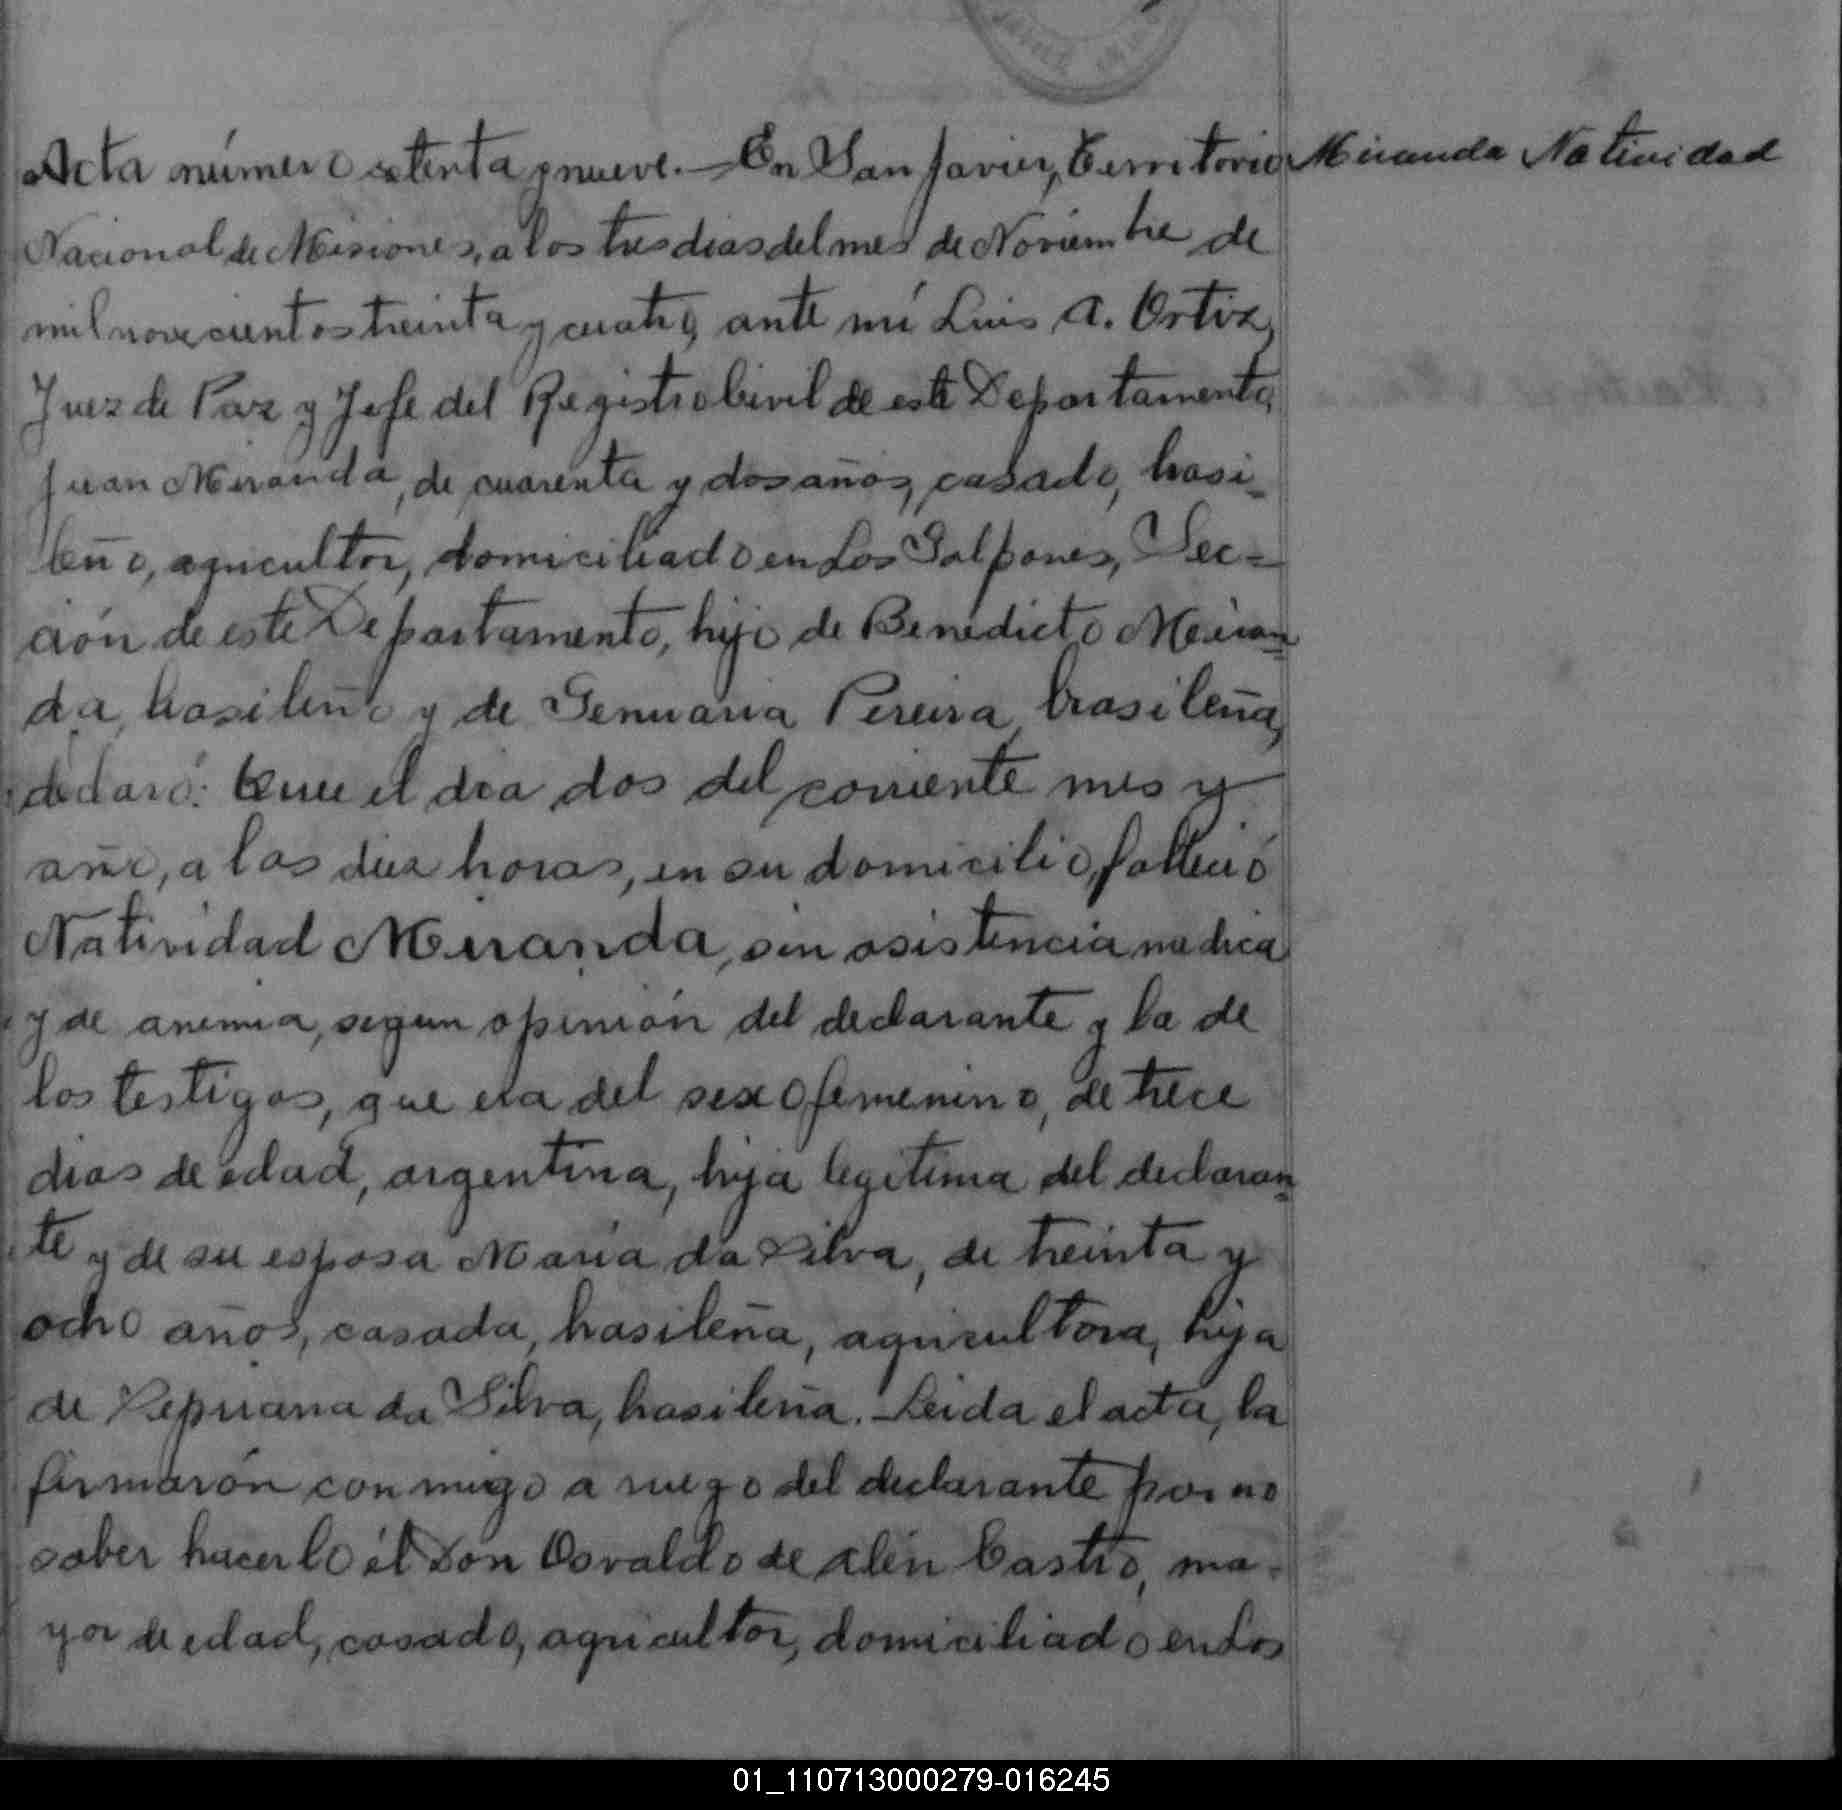 Acta número setenta y nueve.- En San Javier, Territorio
Miranda Natividad
Nacional de Misiones, a los tres dias del mes de Noviembre de
mil novecientos treinta y cuatro, ante mí Luis A. Ortiz,
Juez de Paz y Jefe del Registro Civil de este Departamento,
Juan Miranda, de cuarenta y dos años, casado, brasi-
leño, agricultor, domiciliado en Los Galpones, Sec=
ción de este Departamento, hijo de Benedicto Miran=
da, brasileño y de Genuaria Pereira, brasileña,
declaró: Que el dia dos del corriente mes y
año, a las diez horas, en su domicilio, falleció
Natividad Miranda, sin asistencia medica
y de anemia, segun opinión del declarante y la de
los testigos, que era del sexo femenino, de trece
dias de edad, argentina, hija legitima del declaran=
te y de su esposa Maria da Silva, de treinta y
ocho años, casada, brasileña, agricultora, hija
de da Silva, brasileña. Leida el acta, la
firmarón conmigo a ruego del declarante por no
saber hacerlo él Don Osvaldo de Castro, ma-
yor de edad, casado, agricultor, domiciliado en Los
01_110713000279-016245